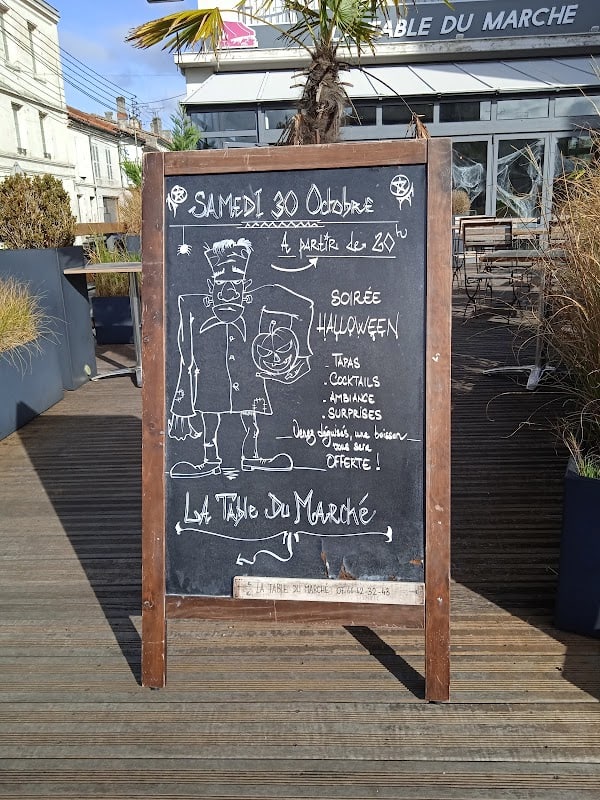 TABLE DU MARCHE
SAMEDI 30 Octobre
A partir de 20h
SOIRÉE
HALLOWEEN
- TAPAS
. COCKTAILS
- AMBIANCE
. SURPRISES
Venez déguisés, une boisson
vous sera
OFFERTE !
LA TABLE DU MARCHÉ
LA TABLE DU MARCHÉ